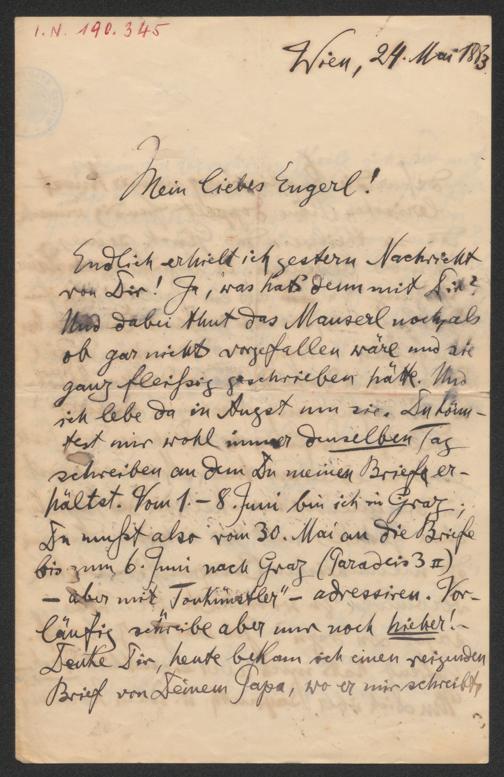 I.N. 190.345
Wien, 24. Mai 1893
Mein liebes Engerl!
Endlich erhielt ich gestern Nachricht
von Dir! Ja, was hat's denn mit Dir?
Und dabei thut das Mauserl noch, als
ob gar nichts vorgefallen wäre und sie
ganz fleißig geschrieben hätte. Und
ich lebe da in Angst um sie. Du könn-
test mir wohl immer denselben Tag
schreiben an dem Du meinen Brief er-
hältst. Vom 1. – 8. Juni bin ich in Graz;
Du mußt also vom 30. Mai an die Briefe
bis zum 6. Juni nach Graz (Paradeis 3 II)
– aber mit "Tonkünstler" – adressiren. Vor-
läufig schreibe aber nur noch hieher! –
Denke Dir, heute bekam ich einen reizenden
Brief von Deinem Papa, wo er mir schreibt,